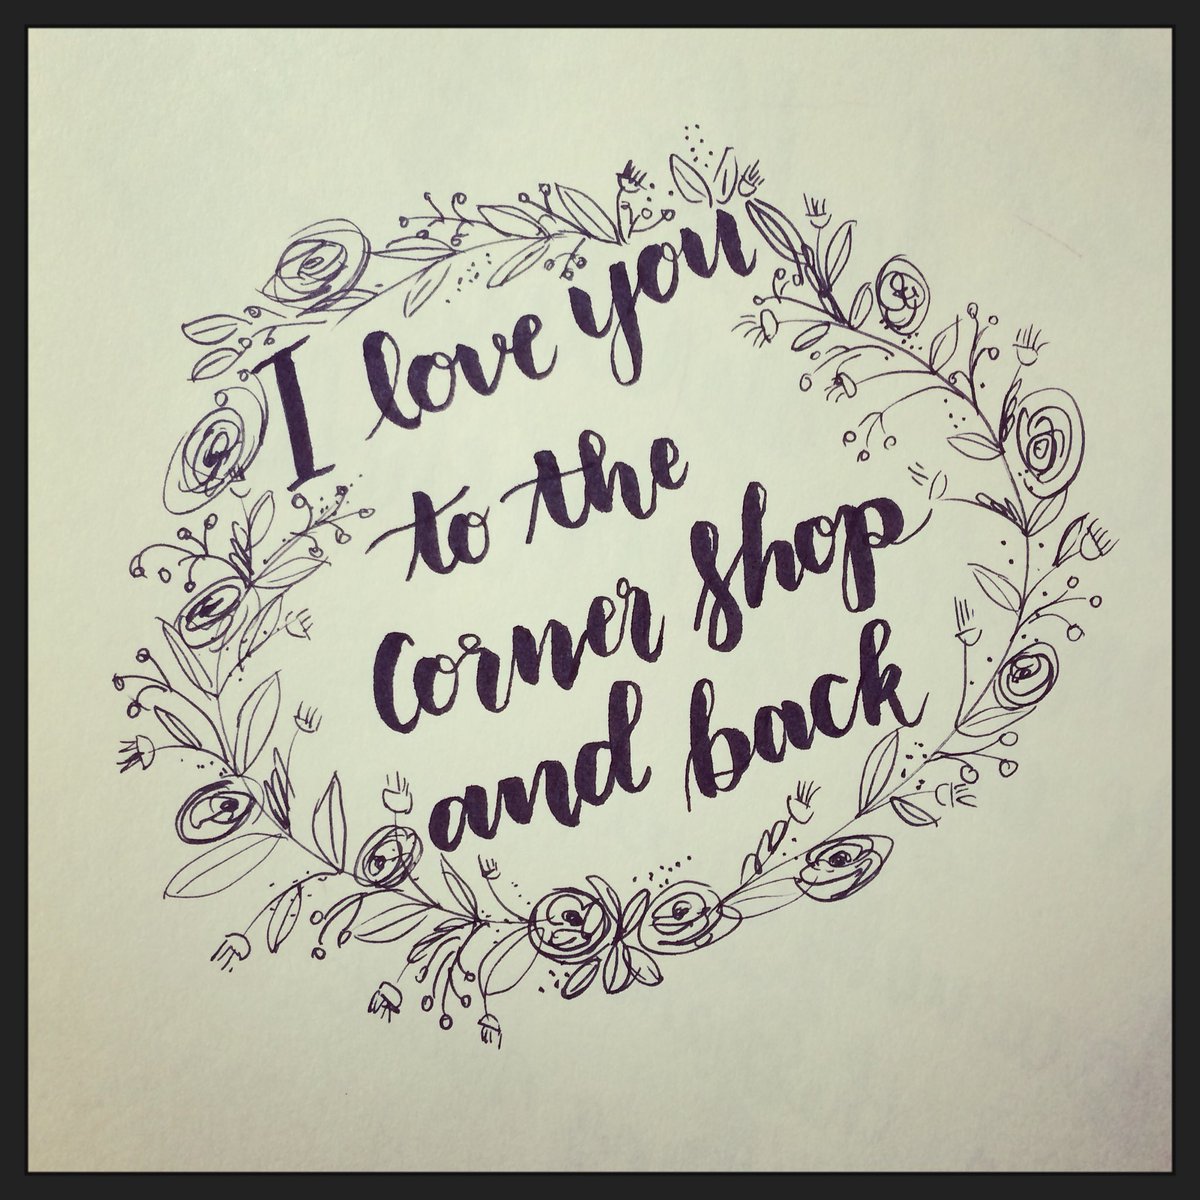 I love you
to the
Corner Shop
and back